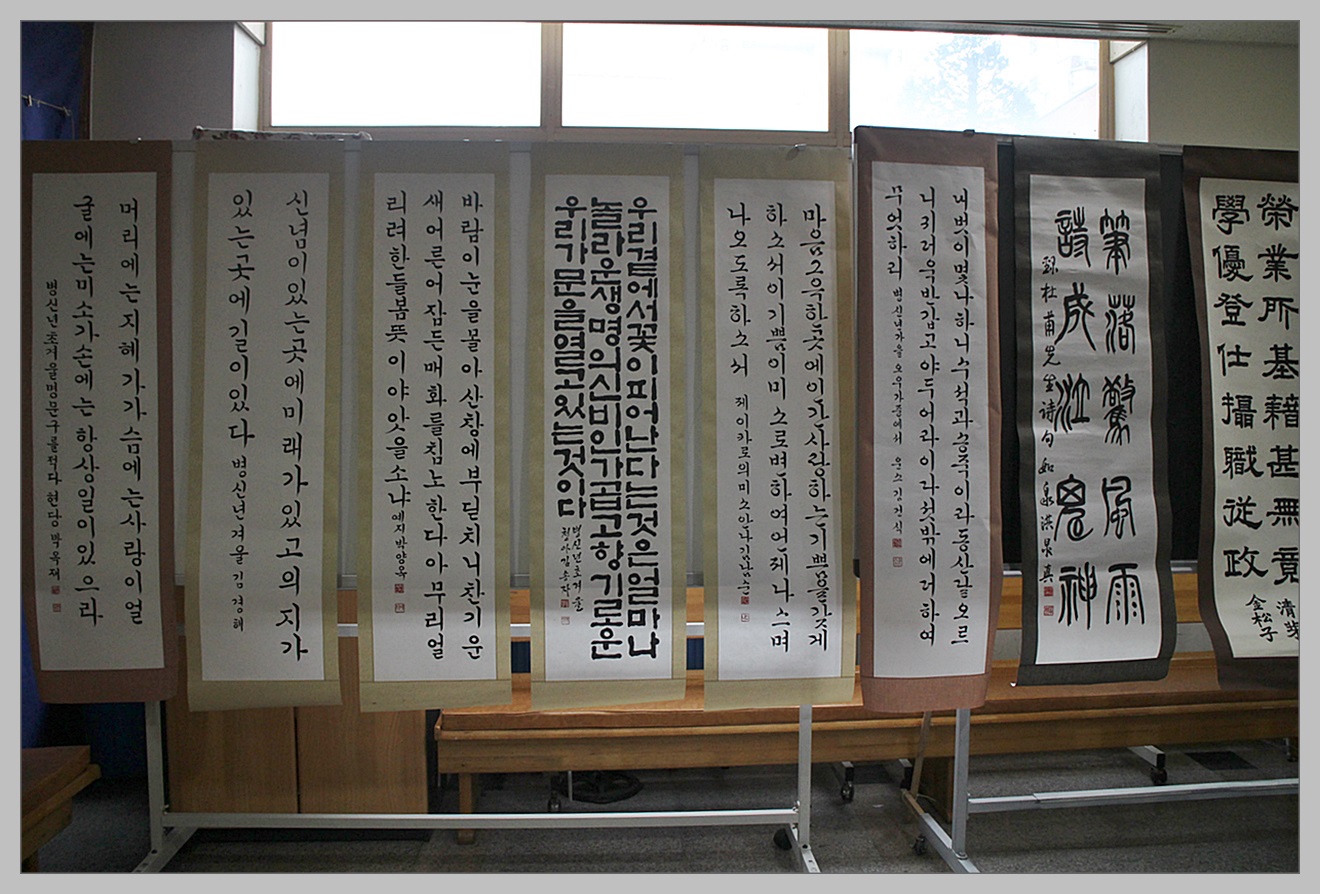 머리에는지혜가가슴에는사랑이얼
굴에는미소가손에는항상일이있으라
병신년초겨울명문구를적다 현당 박옥재
신념이있는곳에미래가있고의지가
있는곳에길이있다 병신년겨울 김경해
바람이눈을몰아산창에부딪치니찬기운
새어른어잠든매화를침노한다아무리얼
리려한들봄뜻이야앗을소냐 예지박양옥
우리곁에서꽃이피어난다는것은얼마나
놀라운생명의신비인가곱고향기로운
우리가문을열고있는것이다
병신년초겨울
마음그윽한곳에이간사랑하는기쁨을갖게
하소서이기쁨이미소로변하여언제나스며
나오도록하소서 제이카로의미소안나김남순
내벗이몇나하니수석과송죽이라동산달오르
니긔더욱반갑고야두어라이다섯밖에더하여
무엇하리 병신년가을 오우가중에서 운소김건식
筆落驚風雨
詩成泣鬼神
榮業所基藉甚無竟
學優登仕攝職從政
金松子